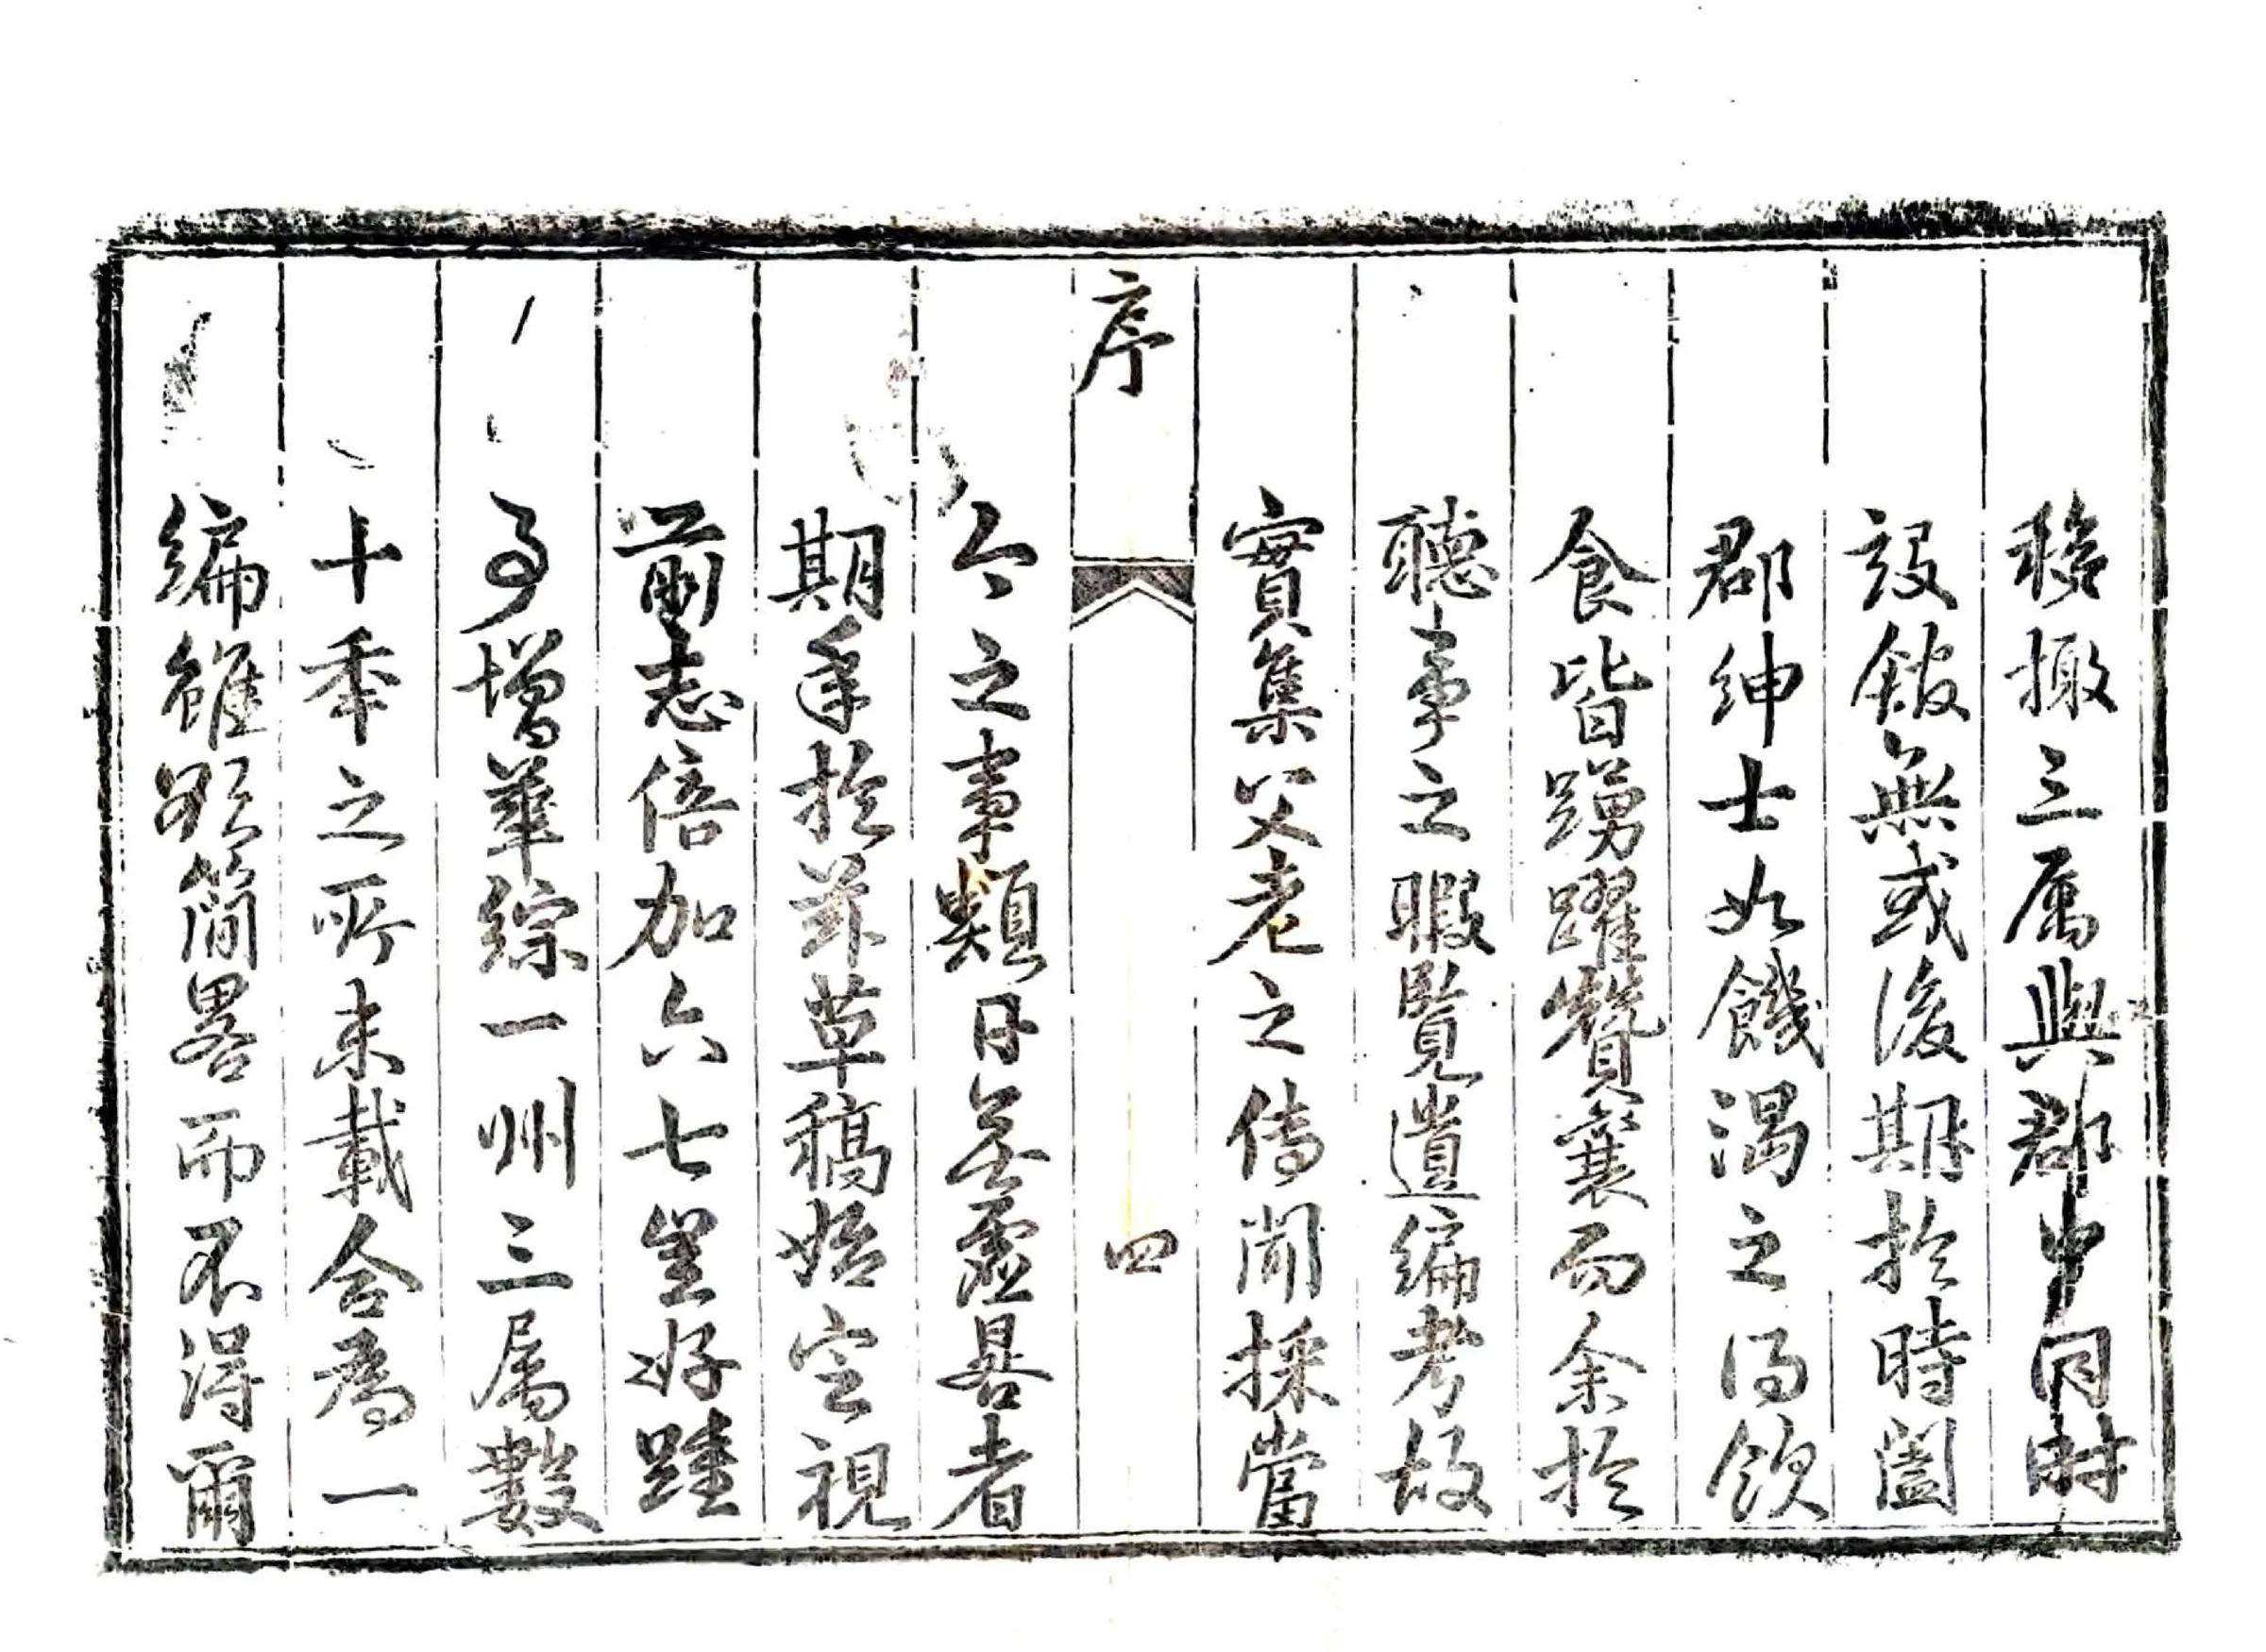 移檄三属與郡中同時
設館無或後期於時闔
郡紳士如饑渴之得飲
食皆踴躍贊襄而余於
聽事之暇覽遺編考故
實集父老之傳聞採當
序
四
今之事類日無虛晷者
期年於茲草稿始定視
前志倍加六七豈好踵
事增華綜一州三属數
十年之所未載合為一
編雖欲簡畧而不得爾